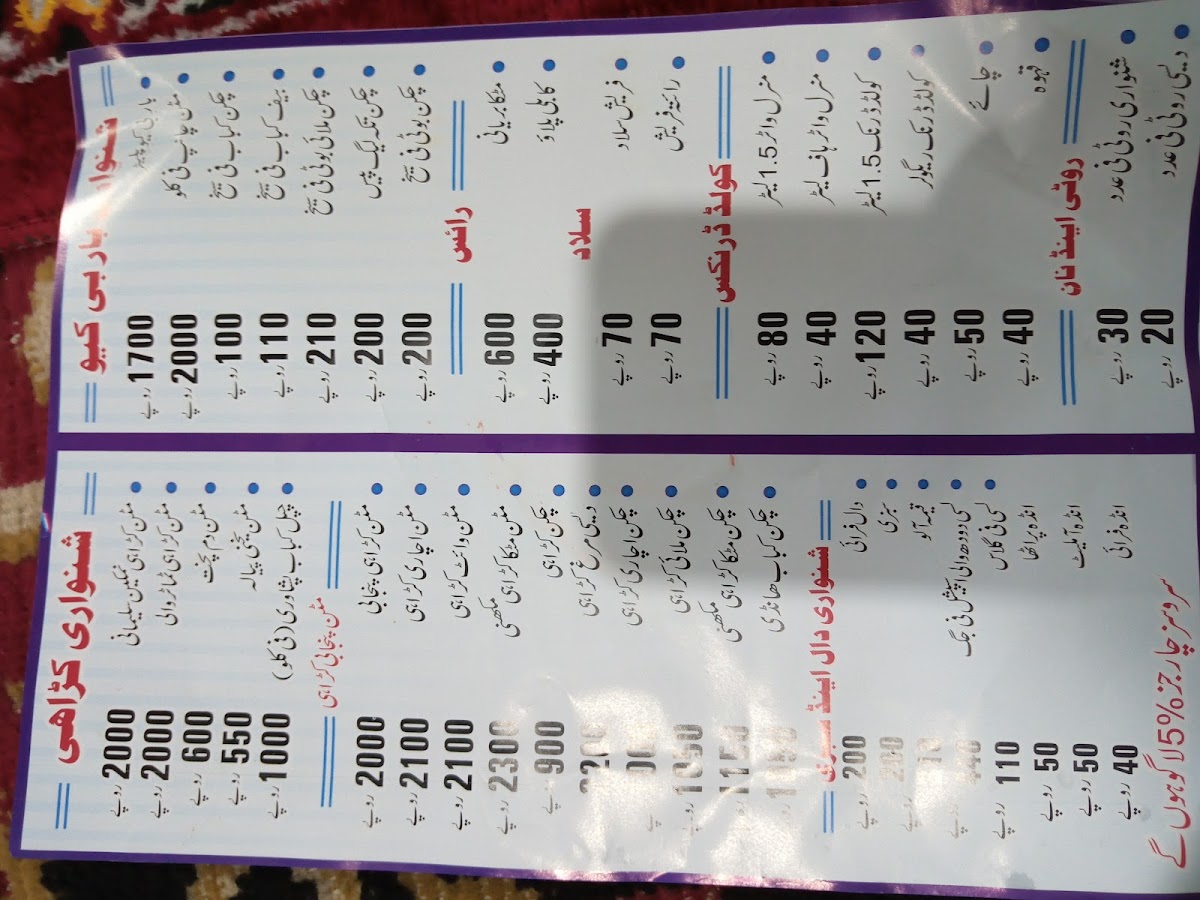 شنواری کڑاھی
مٹن کڑاہی نمکین سلیمانی 2000 روپے
مٹن کڑاہی ٹماٹر والی 2000 روپے
مٹن دم پخت 600 روپے
مٹن یخنی پیالہ 550 روپے
چپل کباب پشاوری (فی کلو) 1000 روپے
مٹن پنجابی کڑاہی
مٹن کڑاہی پنجابی 2000 روپے
مٹن اچاری کڑاہی 2100 روپے
مٹن وائٹ کڑاہی 2100 روپے
مٹن مٹکا کڑاہی مکھنی 2300 روپے
چکن کڑاہی 900 روپے
دیسی مرغ کڑاہی
چکن اچاری کڑاہی
چکن ملائی کڑاہی
چکن مٹکا کڑاہی مکھنی 1150 روپے
چکن کباب ھانڈی روپے
شنواری دال اینڈ سبزی
دال فرائی 200 روپے
سبزی روپے
قیمہ آلو روپے
لسی دودھ والی اسپیشل فی جگ روپے
لسی فی گلاس 110 روپے
انڈہ پراٹھا 50 روپے
انڈہ آملیٹ 50 روپے
انڈہ فرائی 40 روپے
سروسز چارجز %5 لاگو ہوں گے
شنواری بار بی کیو
بار بی کیو پلیٹر 1700 روپے
مٹن چانپ فی کلو 2000 روپے
چکن کباب فی سیخ 100 روپے
بیف کباب فی سیخ 110 روپے
چکن ملائی بوٹی فی سیخ 210 روپے
چکن تکہ لیگ پیس 200 روپے
چکن بوٹی فی سیخ 200 روپے
رائس
مٹکا بریانی 600 روپے
کابلی پلاؤ 400 روپے
سلاد
فریش سلاد 70 روپے
رائتہ فریش 70 روپے
کولڈ ڈرنکس
منرل واٹر 1.5 لیٹر 80 روپے
منرل واٹر ہاف لیٹر 40 روپے
کولڈ ڈرنک 1.5 لیٹر 120 روپے
کولڈ ڈرنک ریگولر 40 روپے
چائے 50 روپے
قہوہ 40 روپے
روٹی اینڈ نان
شنواری روٹی فی عدد 30 روپے
دیسی روٹی فی عدد 20 روپے